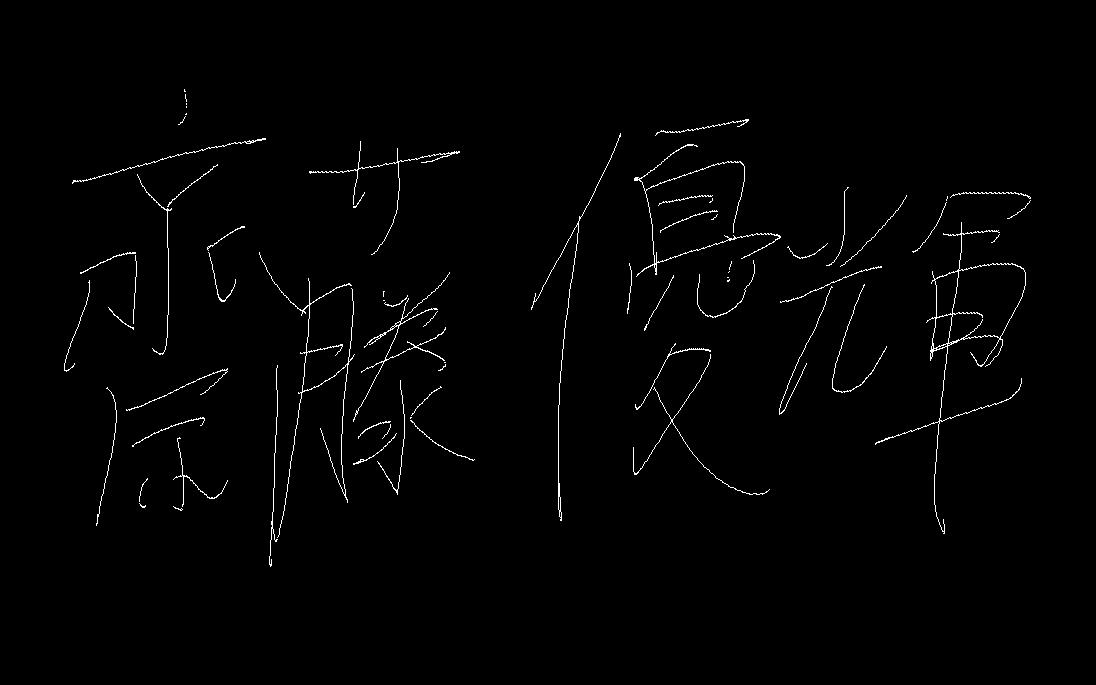 齋藤 優輝